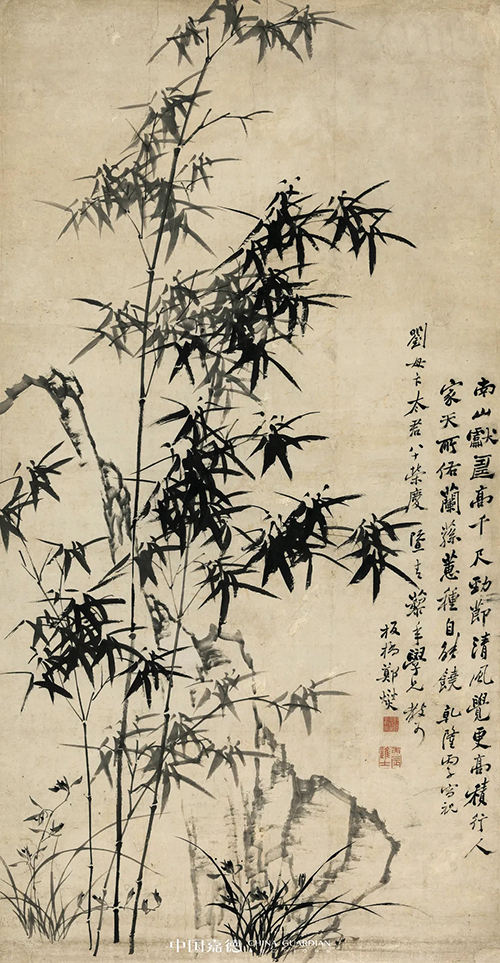 南山獻壽高千尺勁節清風覺更高積行人
家天所佑蘭蓀蕙種自能饒 乾隆丙子寫祝
劉母卞太君八十榮慶 學兄教
板橋鄭燮
丙辰進士
中国嘉德 CHINA GUARDIAN